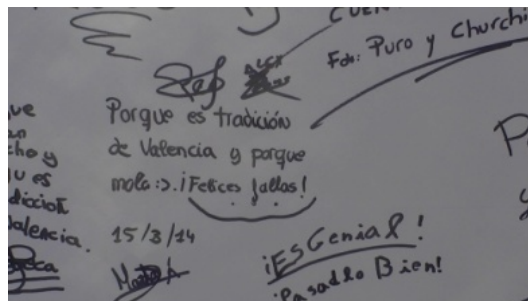 CUEN
Fdo: Puro y Churchi
Porque es tradición
de Valencia y porque
mola :). ¡Felices fallas!
15/3/14
ue
an
cho y
u es
dición
alencia.
¡Es Genial!
¡Pasadlo Bien!